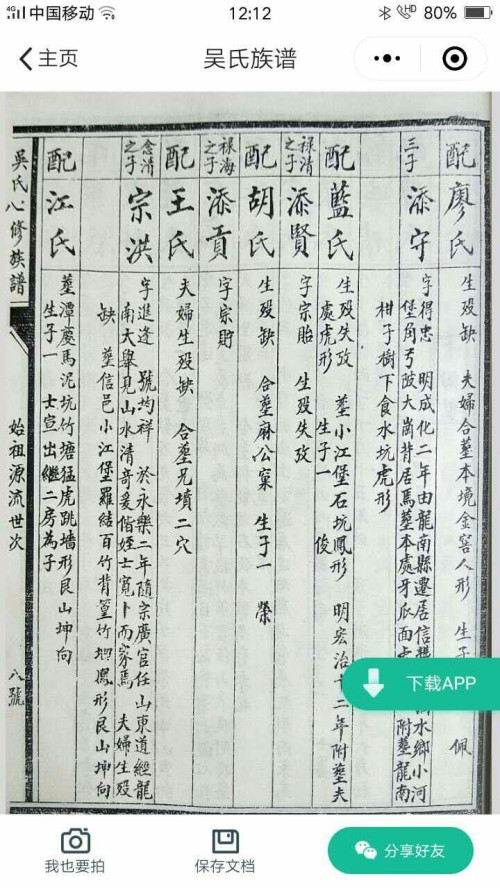 4G 中国移动 12:12 HD 80%
主页
吴氏族谱
配 廖氏
生殁缺 夫婦合塟本境金窖人形 生子 佩
三子 添守
字得忠 明成化二年由龍南縣遷居信豐 水鄉小河
堡角弓陂大崗背居馬塟本處牙瓜面 附塟龍南
柑子樹下食水坑虎形
配 藍氏
生殁失攷 塟小江堡石坑鳳形 明宏治十二年附塟夫
處虎形 生子一 俊
禄清之子 添賢
字宗貽 生殁失攷
配 胡氏
生殁缺 合塟麻公窠 生子一 榮
禄海之子 添貢
字宗貯
配 王氏
夫婦生殁缺 合塟兄墳二穴
念清之子 宗洪
字進逢 號均祥 於永樂二年隨宗廣官任山東道經龍
南大舉見山水清奇爰偕姪士寬卜而家焉 夫婦生殁
缺 塟信邑小江堡羅結百竹背篁竹坳鳳形艮山坤向
配 江氏
塟潭慶馬泥坑竹塘猛虎跳墙形艮山坤向
生子一 士宣出繼二房為子
吳氏八修族譜
始祖源流世次
八號
下载APP
我也要拍
保存文档
分享好友